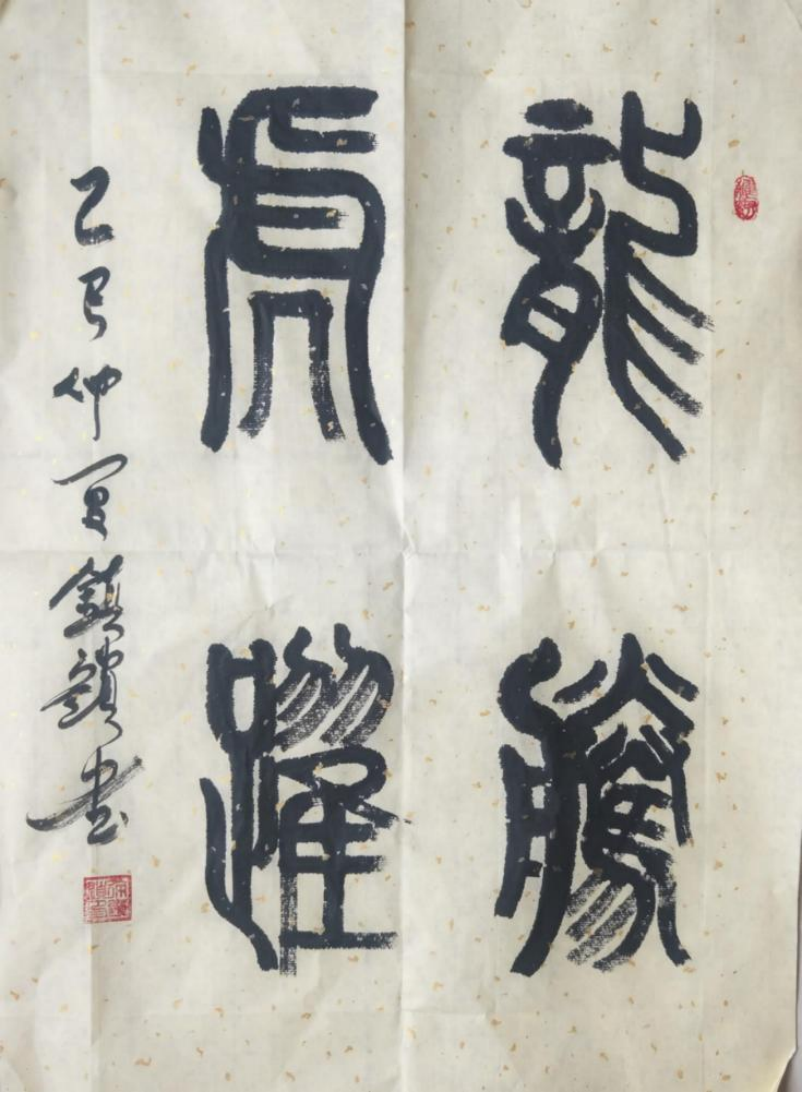 龍騰
虎躍
乙巳仲夏鎮韻書